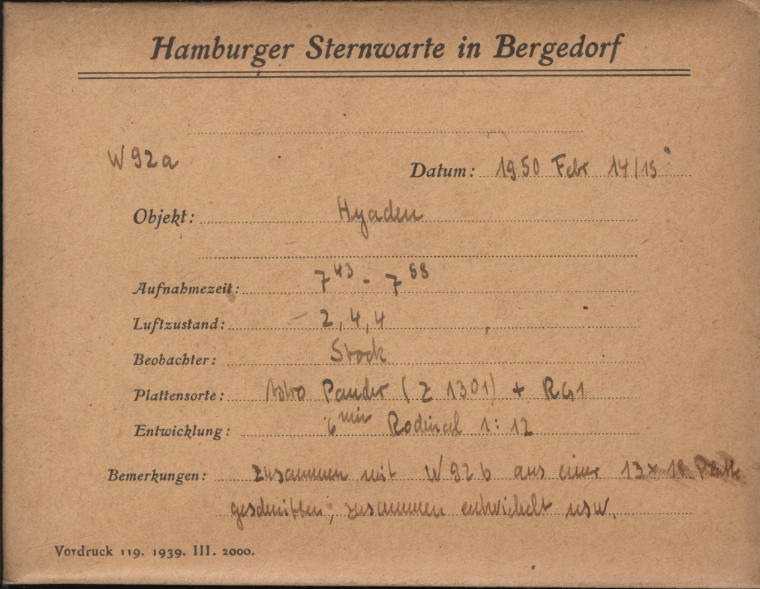 Hamburger Sternwarte in Bergedorf
W 92a
Datum: 1950 Febr 14/15
Objekt: Hyaden
Aufnahmezeit: 7 43 - 7 58
Luftzustand: 2, 4, 4
Beobachter: Stock
Plattensorte: Astro Pander (Z 1301) + RG1
Entwicklung: 6 min Rodinal 1:12
Bemerkungen: zusammen mit W 92 b aus einer 13 x 18 Platte
geschnitten, zusammen entwickelt usw.
Vordruck 119. 1939. III. 2000.